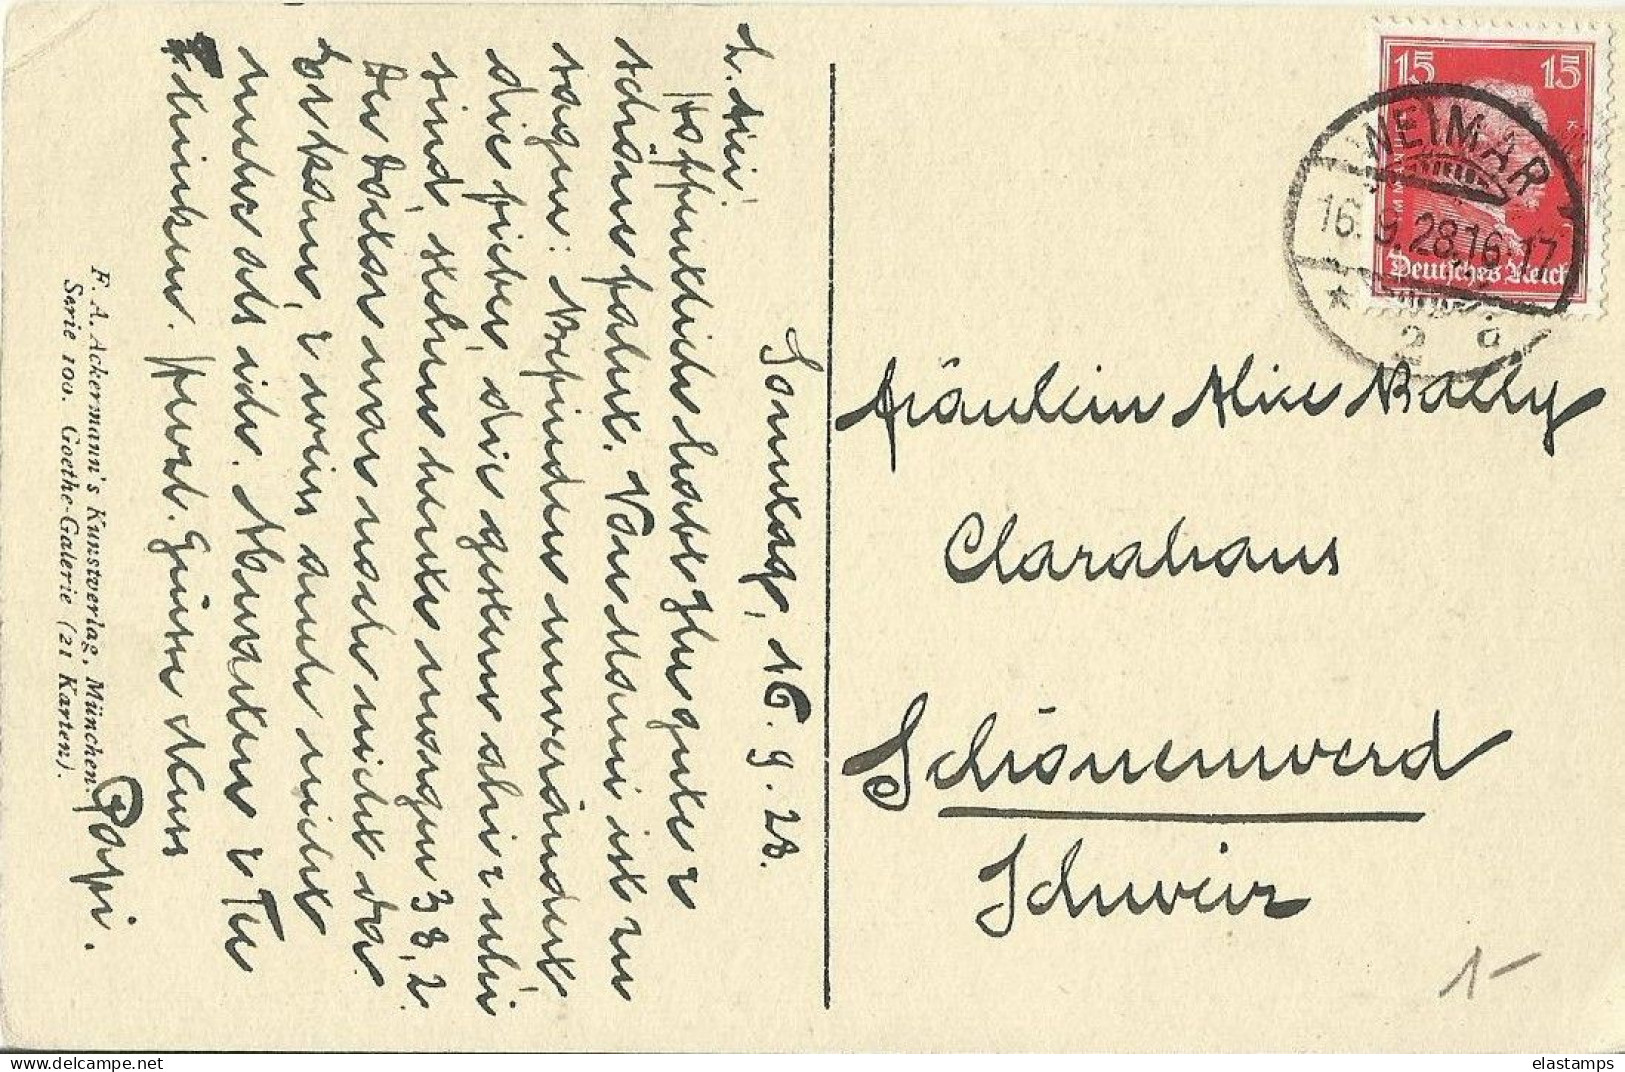 Sonntag, 16. 9. 28.
L. Lici!
Hoffentlich habt Ihr gute &
schöne Fahrt. Von Mami ist zu
sagen: Befinden unverändert
die Fieber, die gestern
sind, stehen heute morgen 38,2.
Der Doktor war noch nicht da
& weiss auch nicht
mehr als ich.
trinken. Herzl. Grüsse & Kuss
Papi.
F. A. Ackermann's Kunstverlag, München.
Serie 100. Goethe-Galerie (21 Karten).
15 15
Deutsches Reich
WEIMAR
16.9.28.16-17
* 2 a
Fräulein Alice Bally
Clarahaus
Schönenwerd
Schweiz
1-
elastamps